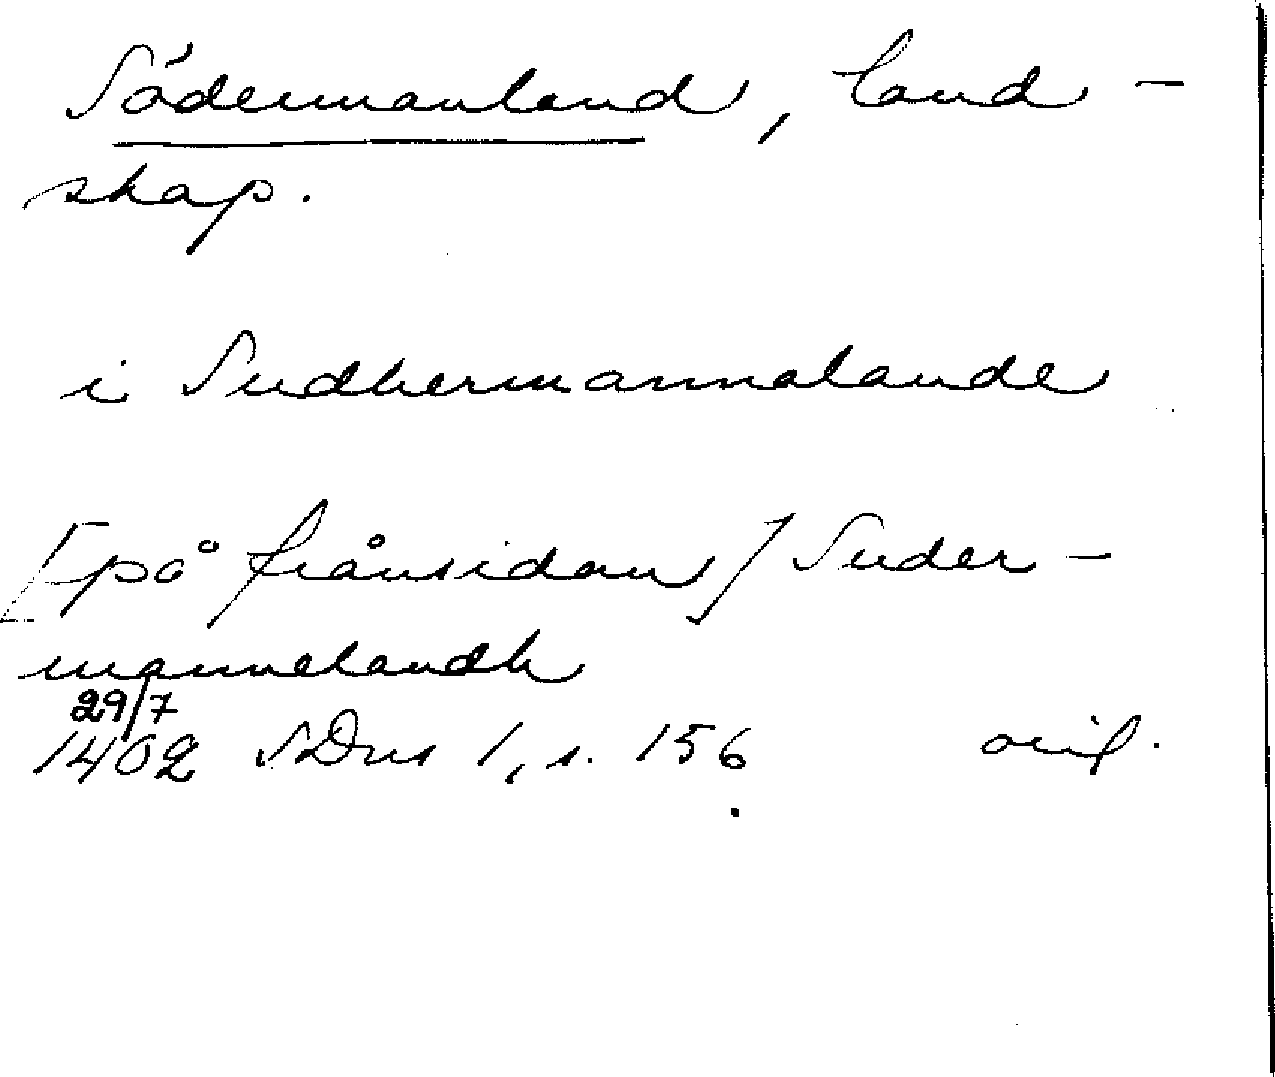 Södermanland, land-
skap.
i Sudhermannalande
[på frånsidan] Suder-
mannelandh
29/7
1402 SDns 1, s. 156 orig.